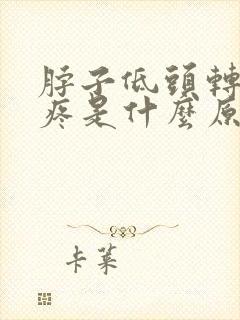 脖子低頭轉
疼是什麼原
卡萊